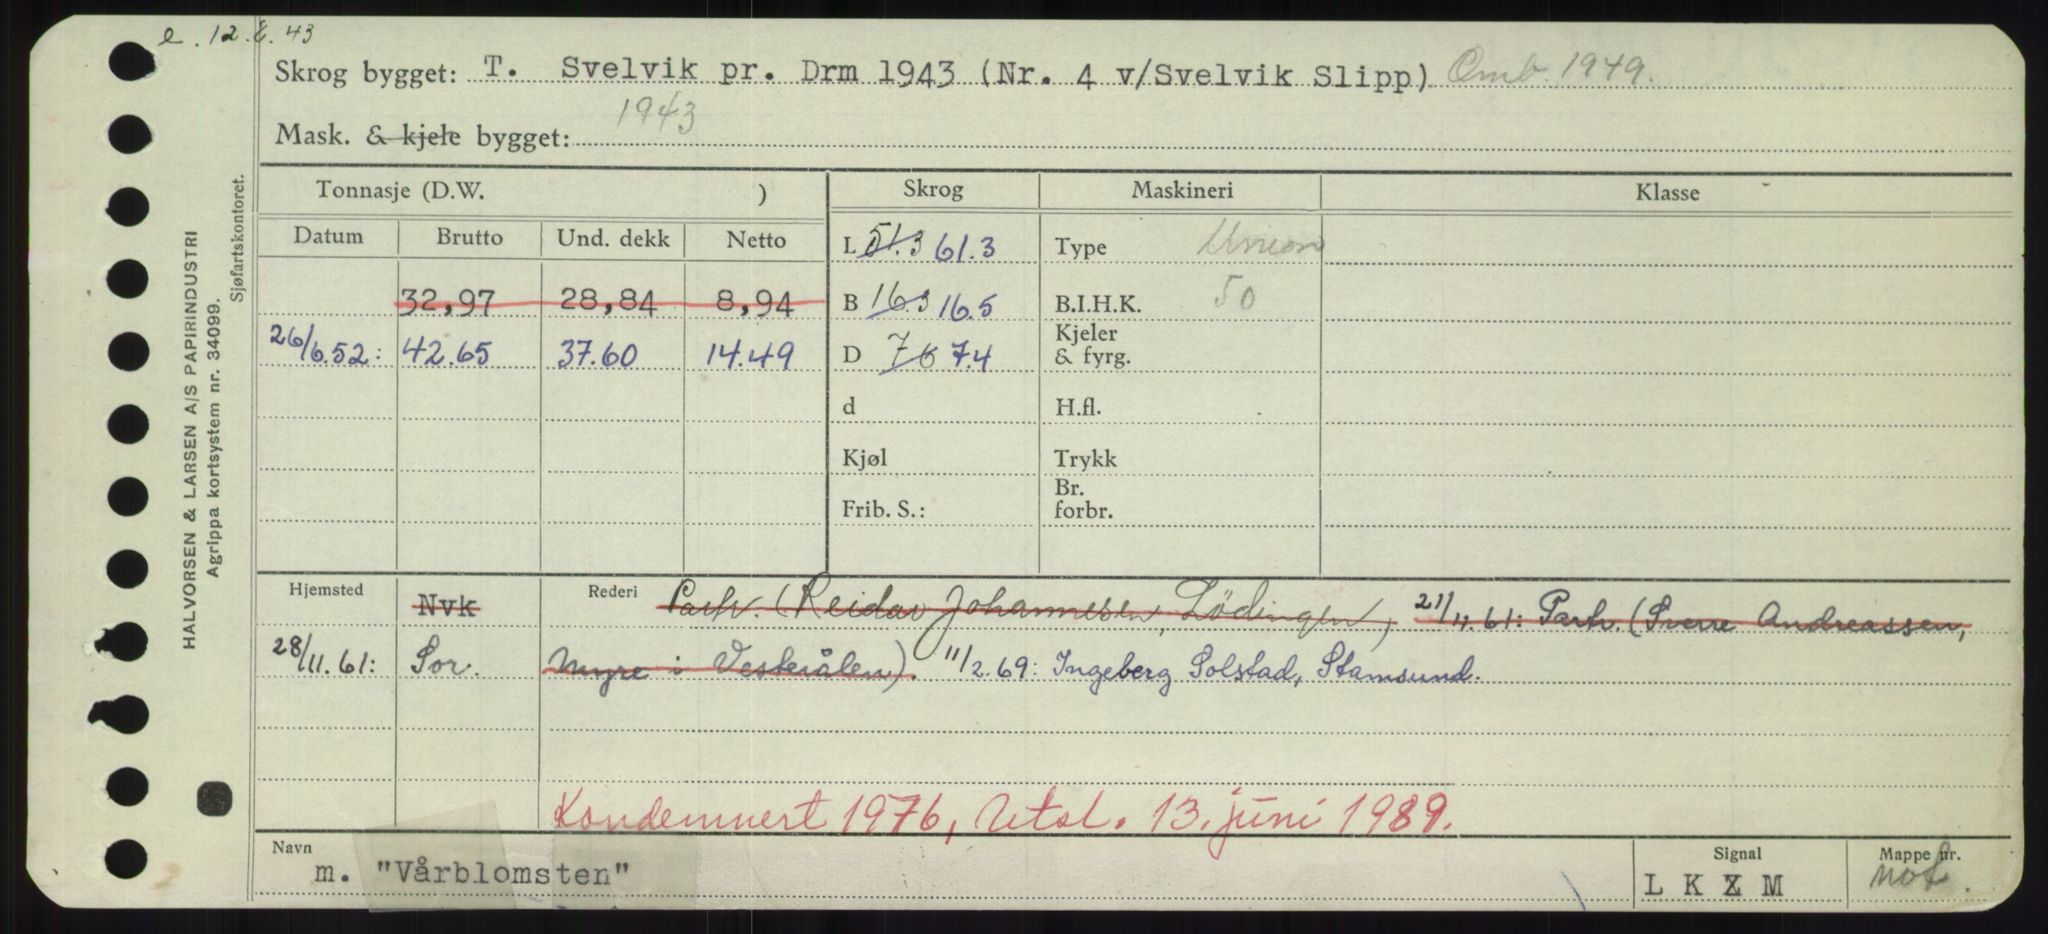 e. 12.6.43
Skrog bygget: T. Svelvik pr. Drm 1943 (Nr. 4 v/Svelvik Slipp) Omb. 1949.
Mask. & kjele bygget: 1943
HALVORSEN & LARSEN A/S PAPIRINDUSTRI
Agrippa kortsystem nr. 34099.
Sjøfartskontoret.
Tonnasje (D.W. ) Skrog Maskineri Klasse
Datum Brutto Und. dekk Netto L 51.3 61.3 Type Union
32,97 28,84 8,94 B 16.3 16.5 B.I.H.K. 50
26/6.52: 42.65 37.60 14.49 D 7.6 7.4 Kjeler & fyrg.
d H.fl.
Kjøl Trykk
Frib. S.: Br. forbr.
Hjemsted Nvk Rederi Partr. (Reidar Johannesen, Lödingen) 21/11.61: Partr. (Sverre Andreassen,
28/11.61: Sor. Myre i Vesterålen). 11/2.69: Ingeberg Solstad, Stamsund.
Kondemnert 1976, Utsl. 13. juni 1989.
Navn Signal Mappe nr.
m. "Vårblomsten" L K Z M not.